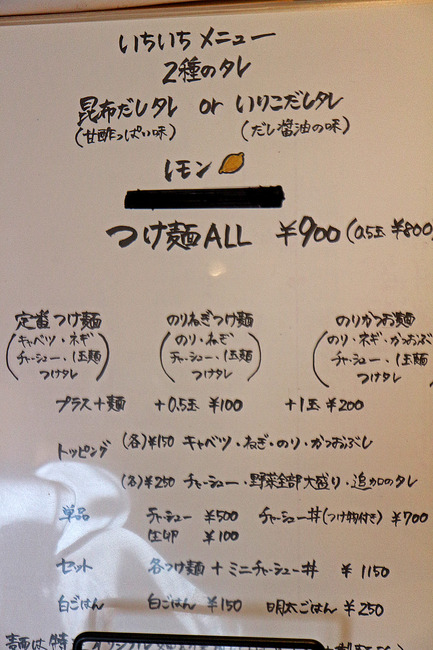 いちいちメニュー
2種のタレ
昆布だしタレ or いりこだしタレ
(甘酢っぱい味) (だし醤油の味)
レモン
つけ麺ALL ¥900(0.5玉 ¥800)
定番つけ麺 のりねぎつけ麺 のりかつお麺
(キャベツ・ネギ (のり・ねぎ (のり・ネギ・かつおぶし
チャーシュー・1玉麺 チャーシュー・1玉麺 チャーシュー・1玉麺
つけタレ) つけタレ) つけタレ)
プラス+麺 +0.5玉 ¥100 +1玉 ¥200
トッピング (各)¥150 キャベツ・ねぎ・のり・かつおぶし
(各)¥250 チャーシュー・野菜全部大盛り・追加のタレ
単品 チャーシュー ¥500 チャーシュー丼(つけ物付き) ¥700
生卵 ¥100
セット 各つけ麺+ミニチャーシュー丼 ¥1150
白ごはん 白ごはん ¥150 明太ごはん ¥250
麺は特